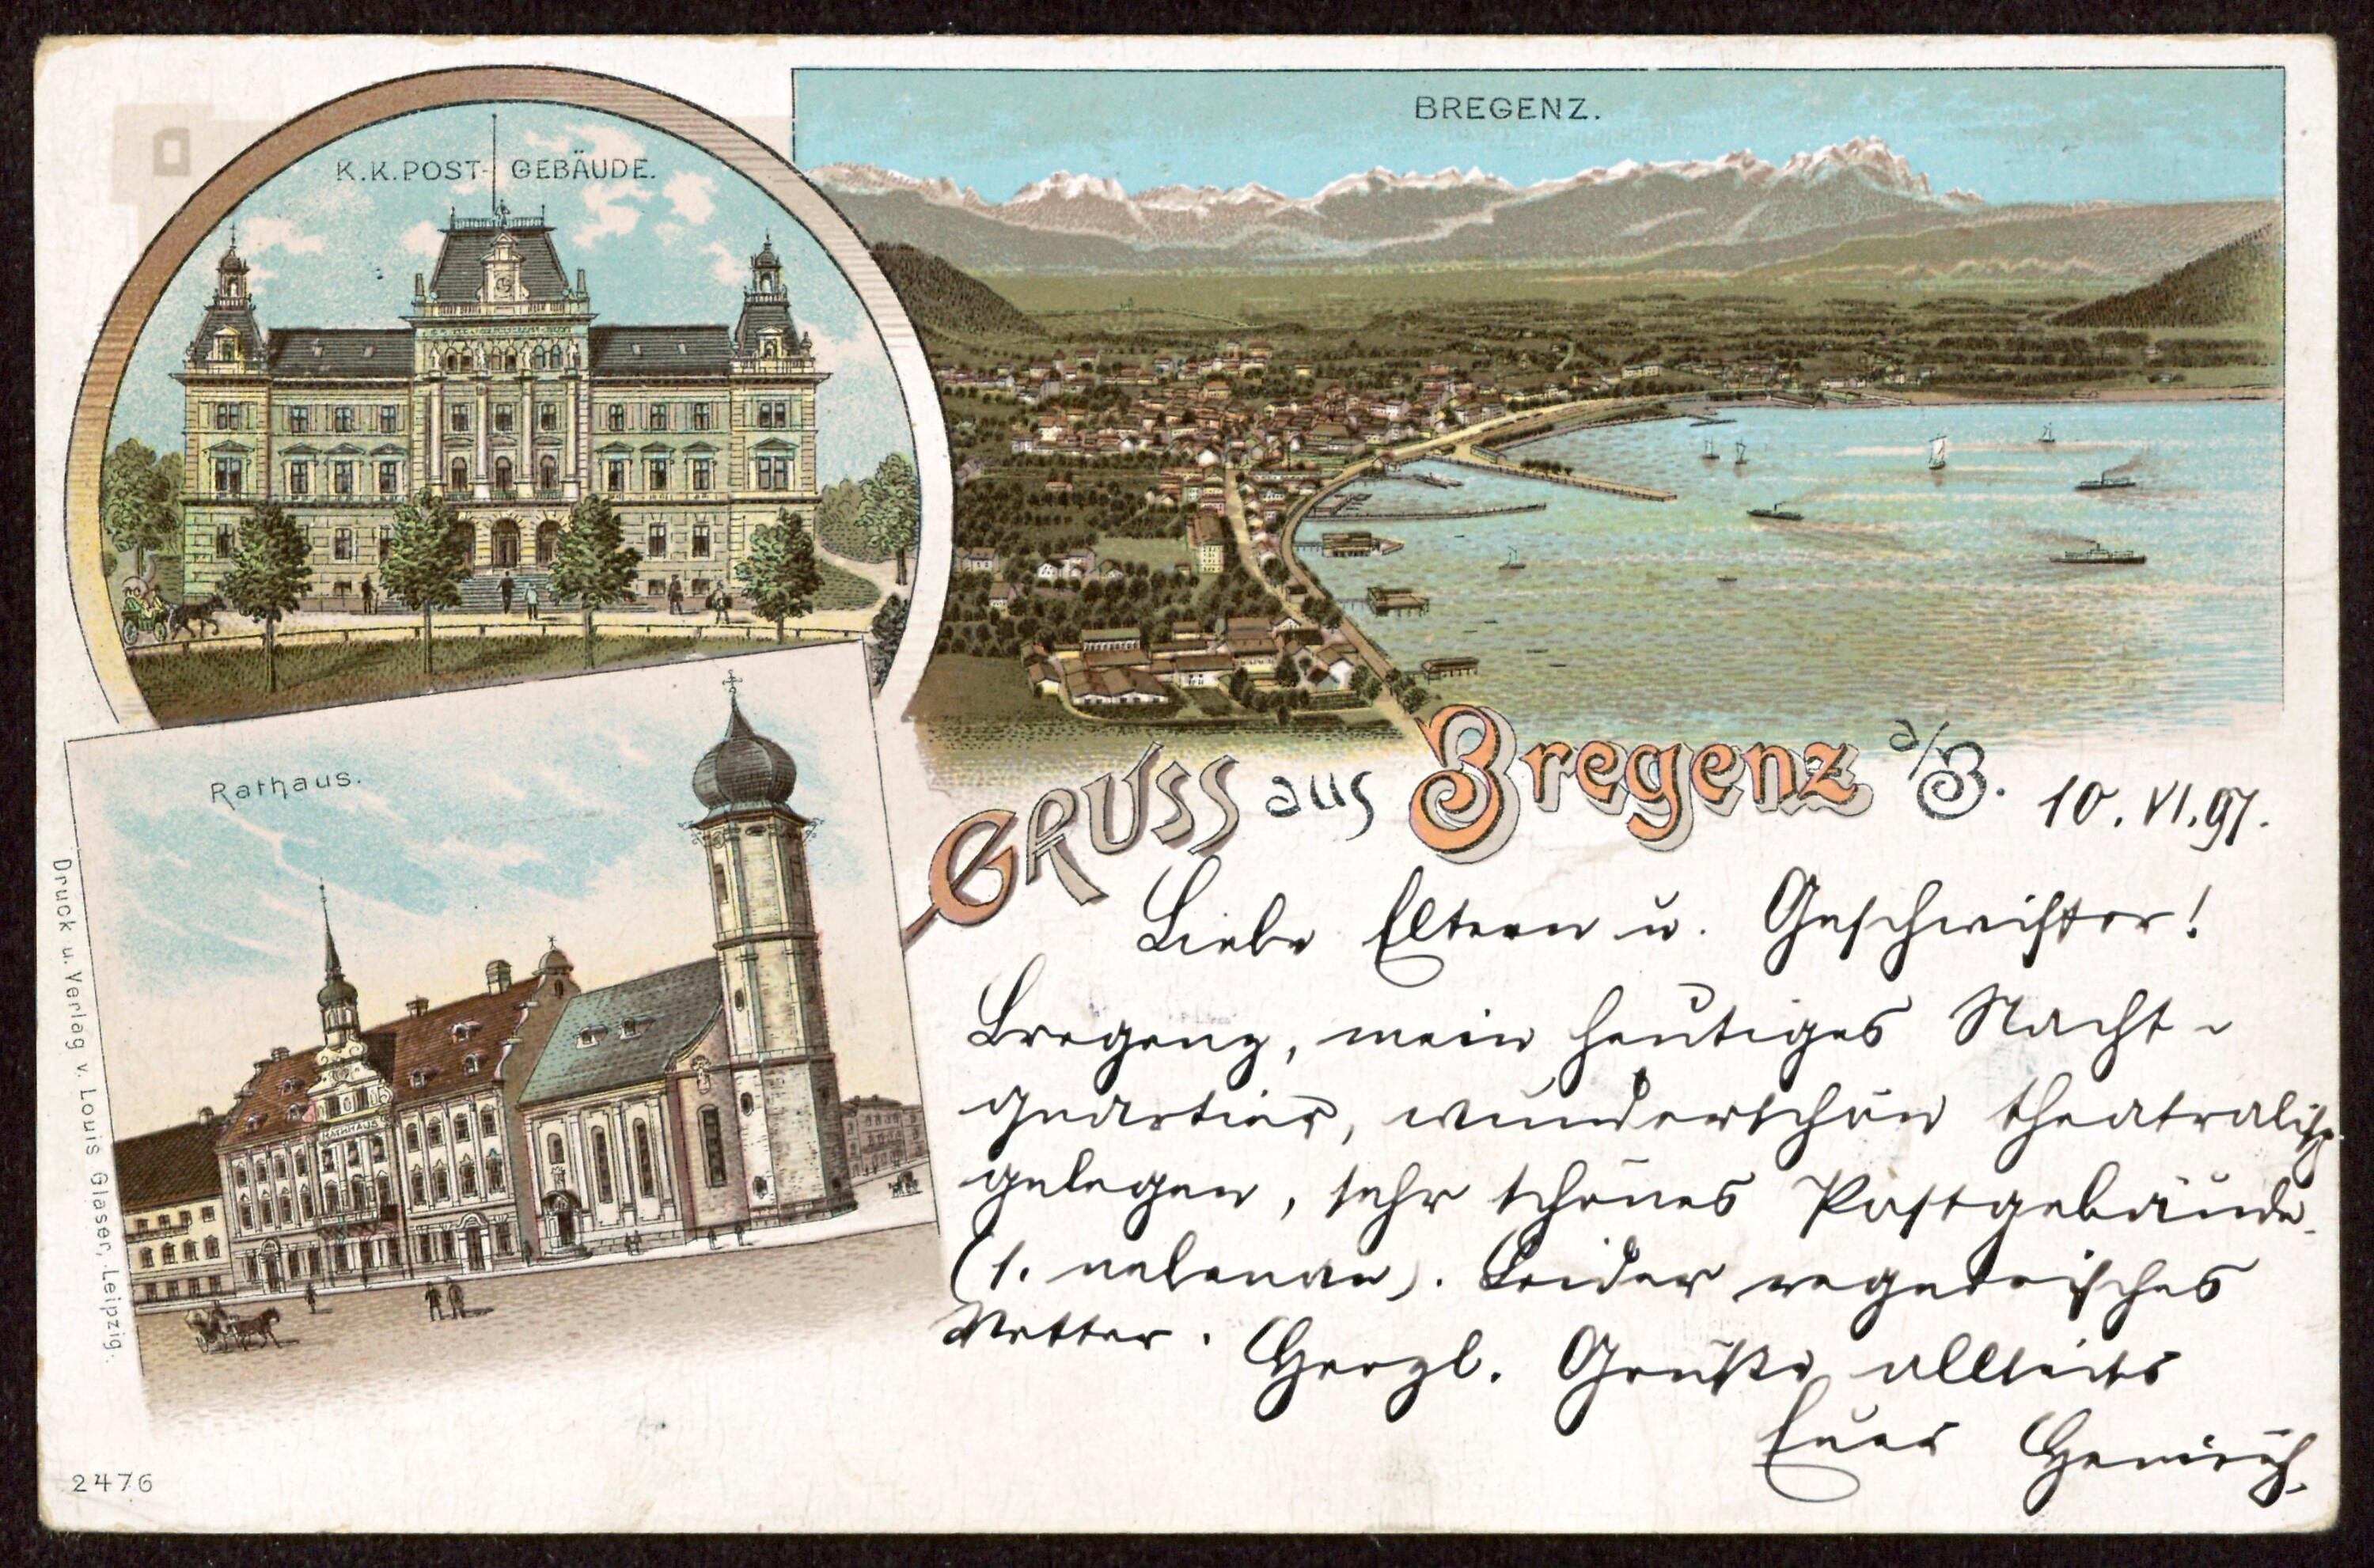 K.K. POST-GEBÄUDE.
BREGENZ.
Rathaus.
RATHAUS
GRUSS aus Bregenz a/B.
10. VI. 97.
Liebe Eltern u. Geschwister!
Bregenz, mein heutiges Nacht-
quartier, wunderschön theatralisch
gelegen, sehr schönes Postgebäude
(s. nebenan). Leider regnerisches
Wetter. Herzl. Grüße allseits
Euer Heinrich.
Druck u. Verlag v. Louis Glaser, Leipzig.
2476